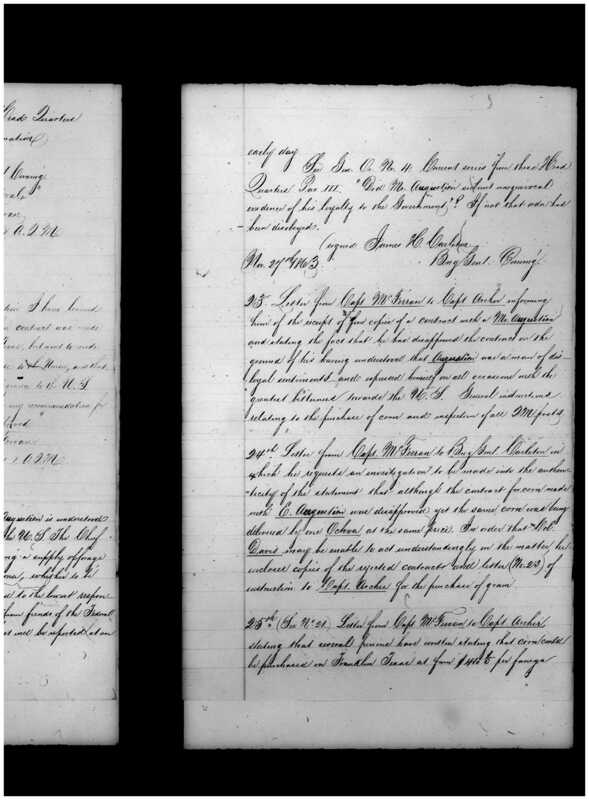 Head Quarters
A. Q. M.
I have learned
contract was made
and that
U. S.
my recommendation for
A. Q. M.
Augustien is understood
the U. S. The Chief
a supply of forage
whether to be
to the lowest respon
friends of the Federal
will be reported at an
early day
See Gen. O. No. 4. Current series from these Head
Quarters Par III. "Did Mr. Augustien submit unequivocal
evidence of his loyalty to the Government"? If not that order has
been disobeyed.
(signed James H. Carleton
Nov. 27th 1863. Brig Genl. Comng'
23rd Letter from Capt. McFerran to Capt Archer informing
him of the receipt of four copies of a contract with a Mr. Augustien
and stating the fact that he has disapproved the contract on the
ground of his having understood that Augustien was a man of dis-
loyal sentiments and expressed himself on all occasions with the
greatest bitterness towards the U. S. General instructions
relating to the purchase of corn and inspection of all QM posts.
24th Letter from Capt. McFerran to Brig Genl. Carleton in
which he requests an investigation to be made into the authen-
ticity of the statement that although the contract for corn made
with E. Augustien was disapproved yet the same corn was being
delivered by one Ochoa at the same price. In order that Col.
Davis may be enabled to act understandingly in the matter, he
encloses copies of the rejected contract and letter (No. 23) of
instruction to Capt. Archer for the purchase of grain
25th (See No. 21.) Letter from Capt. McFerran to Capt Archer
stating that several persons have written stating that corn could
be purchased in Franklin Texas at from $4 per fanega